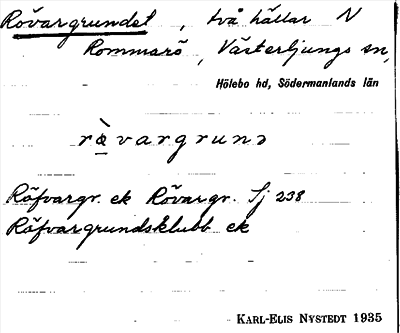 Rövargrundet, två hällar N
Rommarö, Västerljungs sn,
Hölebo hd, Södermanlands län
rὰvargrund
Röfvargr. ek Rövargr. Sj 238
Röfvargrundsklubb ek
KARL-ELIS NYSTEDT 1935